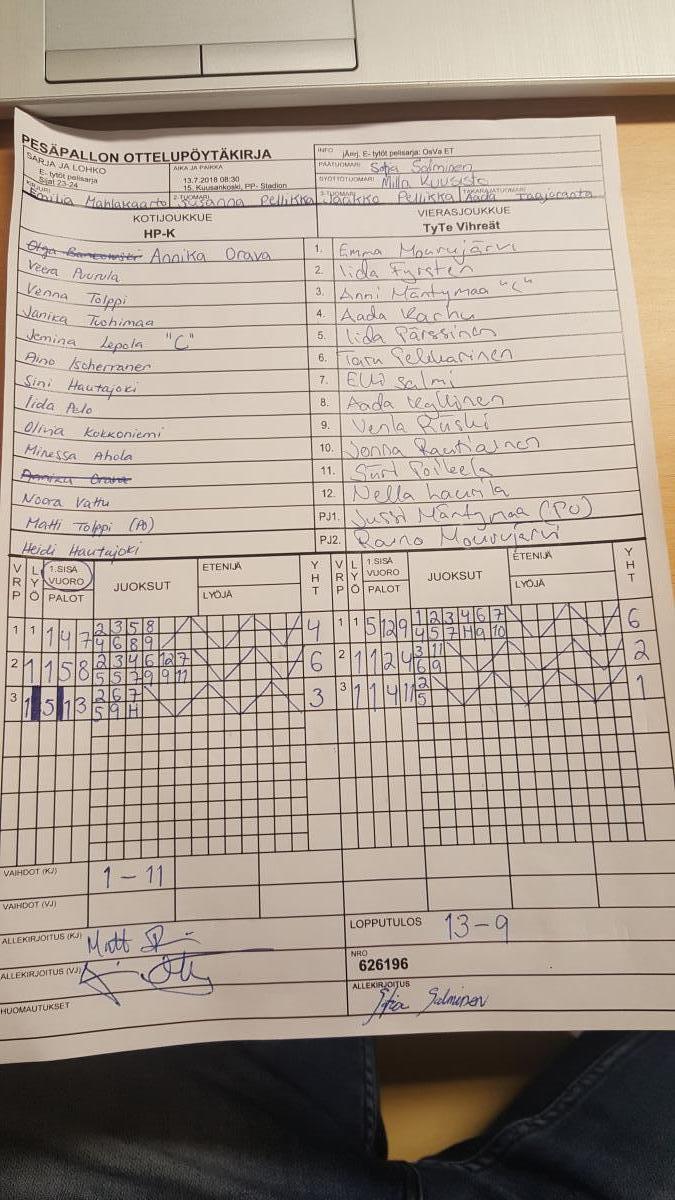 PESÄPALLON OTTELUPÖYTÄKIRJA
INFO jÄrrj. E- tytöt pelisarja: OsVa ET
SARJA JA LOHKO
E- tytöt pelisarja
Sijat 23-24
AIKA JA PAIKKA
13.7.2018 08:30
15. Kuusankoski, PP- Stadion
PÄÄTUOMARI Sofia Salminen
SYÖTTÖTUOMARI Milla Kuusisto
KIRJURI Emilia Mahlakaarto 2-TUOMARI Susanna Pellikka 3-TUOMARI Jaakko Pellikka TAKARAJATUOMARI Aada
KOTIJOUKKUE VIERASJOUKKUE
HP-K TyTe Vihreät
Annika Orava 1. Emma Mourujärvi
Veera Puurula 2. Iida Fyrsten
Venna Tolppi 3. Anni Mäntymaa "C"
Janika Tuohimaa 4. Aada Karhu
Jemina Lepola "C" 5. Iida Pärssinen
Aino Isoherranen 6. Taru Pekkarinen
Sini Hautajoki 7. Elli Salmi
Iida Palo 8. Aada Kyllinen
Olivia Kokkoniemi 9. Venla Riiski
Minessa Ahola 10. Jonna Rautiainen
Annika Orava 11. Suvi
Noora Vattu 12. Nella Laurila
Matti Tolppi (PJ) PJ1. Jussi Mäntymaa (PJ)
Heidi Hautajoki PJ2. Rauno Mourujärvi
VRP LYÖ 1.SISÄ VUORO PALOT JUOKSUT ETENIJÄ LYÖJÄ YHT VRP LYÖ 1.SISÄ VUORO PALOT JUOKSUT ETENIJÄ LYÖJÄ YHT
1 1 1 4 7 2 3 5 8 4 1 1 5 12 9 1 2 3 4 6 7 6
4 6 8 9 4 5 7 H 9 10
2 1 1 5 8 2 3 4 6 12 7 6 2 1 1 2 4 3 11 2
5 5 7 9 9 11 6 9
3 1 5 1 3 2 6 7 3 3 1 1 4 11 2 1
5 9 H 5
VAIHDOT (KJ) 1 - 11
VAIHDOT (VJ)
ALLEKIRJOITUS (KJ) LOPPUTULOS 13-9
ALLEKIRJOITUS (VJ) NRO
626196
HUOMAUTUKSET ALLEKIRJOITUS
Sofia Salminen